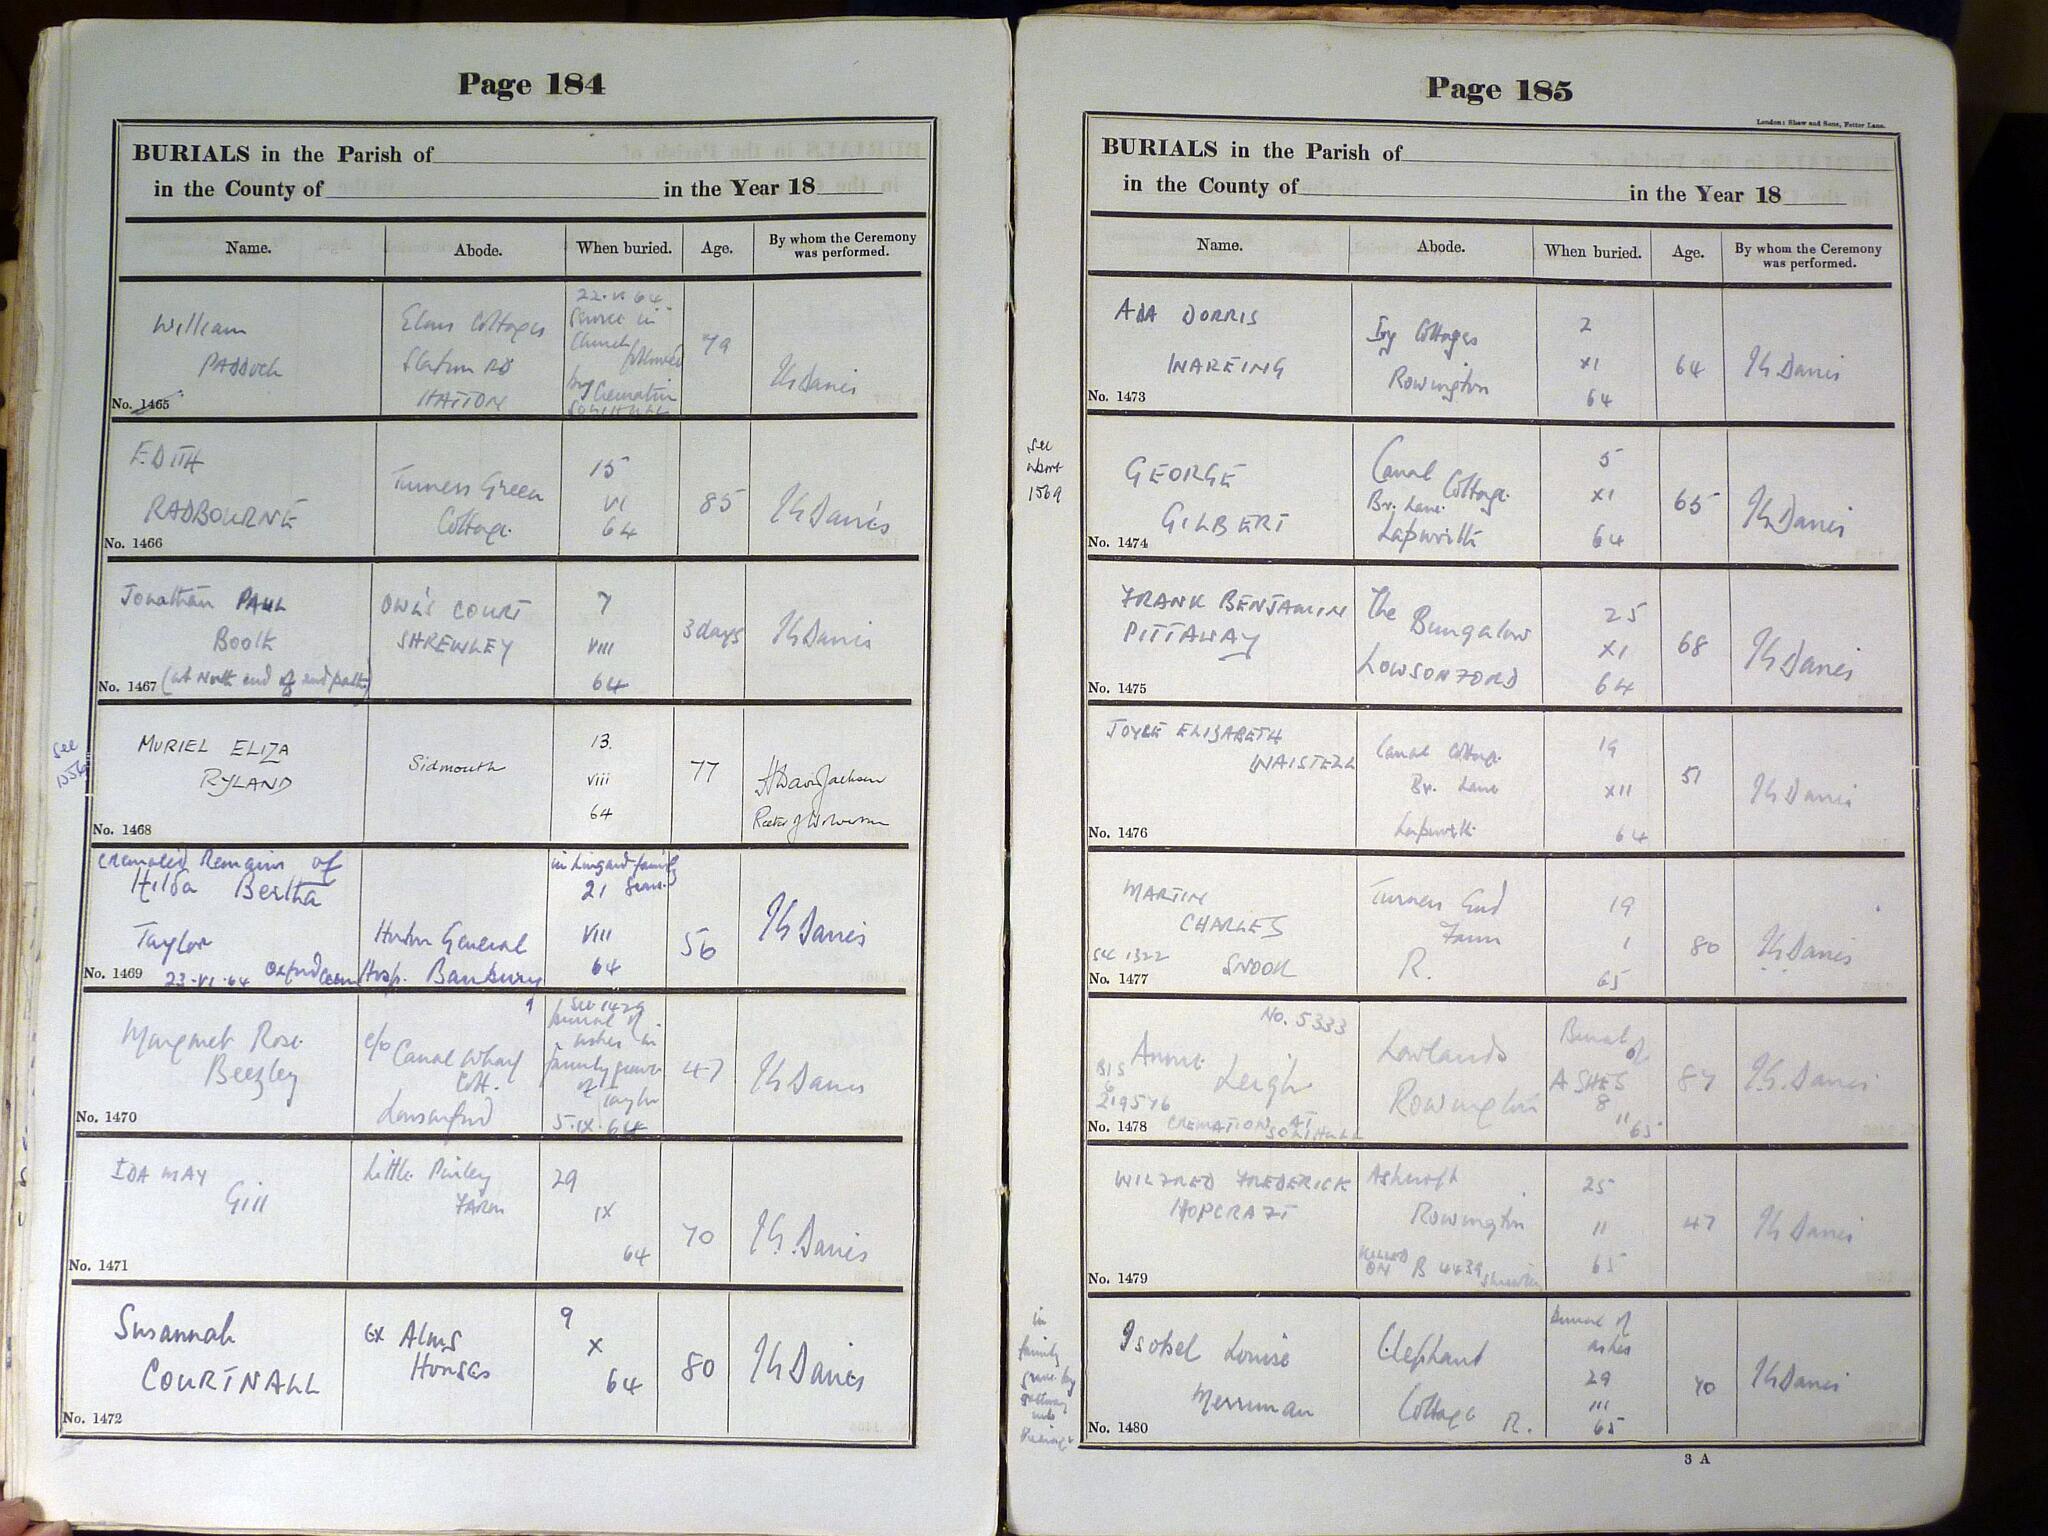 Page 184
BURIALS in the Parish of
in the County of in the Year 18
Name. Abode. When buried. Age. By whom the Ceremony was performed.
William
PADDOCK
No. 1465
Elms Cottages
Station RD
HATTON
22.VI.64
Service in
Church
followed
by Cremation
SOLIHULL
79
Davies
EDITH
RADBOURNE
No. 1466
Turners Green
Cottage.
15
VI
64
85
Davies
Jonathan PAUL
Book
(at North end of end path)
No. 1467
OWL'S COURT
SHREWLEY
7
VIII
64
3 days
Davies
see
MURIEL ELIZA
RYLAND
No. 1468
Sidmouth
13.
viii
64
77
Jackson
Rector of
Cremated Remains of
Hilda Bertha
Taylor
No. 1469
23.VI.64 Oxford Crem
Horton General
Hosp. Banbury
in Lingard family
21 grave
VIII
64
56
Davies
Margaret Rose
Beezley
No. 1470
c/o Canal Wharf
Cott.
Lowsonford
See 1429
burial of
ashes in
family grave
of
Taylor
5.IX.64
47
Davies
IDA MAY
Gill
No. 1471
Little Pinley
FARM
29
IX
64
70
Davies
Susannah
COURTNALL
No. 1472
ex Alms
Houses
9
X
64
80
Davies
Page 185
London: Shaw and Sons, Fetter Lane.
BURIALS in the Parish of
in the County of in the Year 18
Name. Abode. When buried. Age. By whom the Ceremony was performed.
ADA DORRIS
WAREING
No. 1473
Ivy Cottages
Rowington
2
XI
64
64
Davies
see
about
1569
GEORGE
GILBERT
No. 1474
Canal
Cottage.
Br. Lane.
Lapworth
5
XI
64
65
Davies
FRANK BENJAMIN
PITTAWAY
No. 1475
The Bungalow
LOWSONFORD
25
XI
64
68
Davies
JOYCE ELISABETH
WAISTELL
No. 1476
Canal Cottage.
Br. Lane
Lapworth
19
XII
64
51
Davies
MARTIN
CHARLES
see 1322
SNOOK
No. 1477
Turners End
Farm
R.
19
1
65
80
Davies
No. 5333
Annie
Leigh
CREMATION AT
SOLIHULL
No. 1478
Lowlands
Rowington
Burial of
ASHES
8
11
65
87
Davies
WILFRED FREDERICK
HOPCRAFT
No. 1479
Ashcroft
Rowington
KILLED
ON B 4439
25
11
65
47
Davies
in
family
grave by
pathway
Isobel Louise
Merriman
No. 1480
Elephant
Cottage R.
Burial of
ashes
29
III
65
70
Davies
3 A